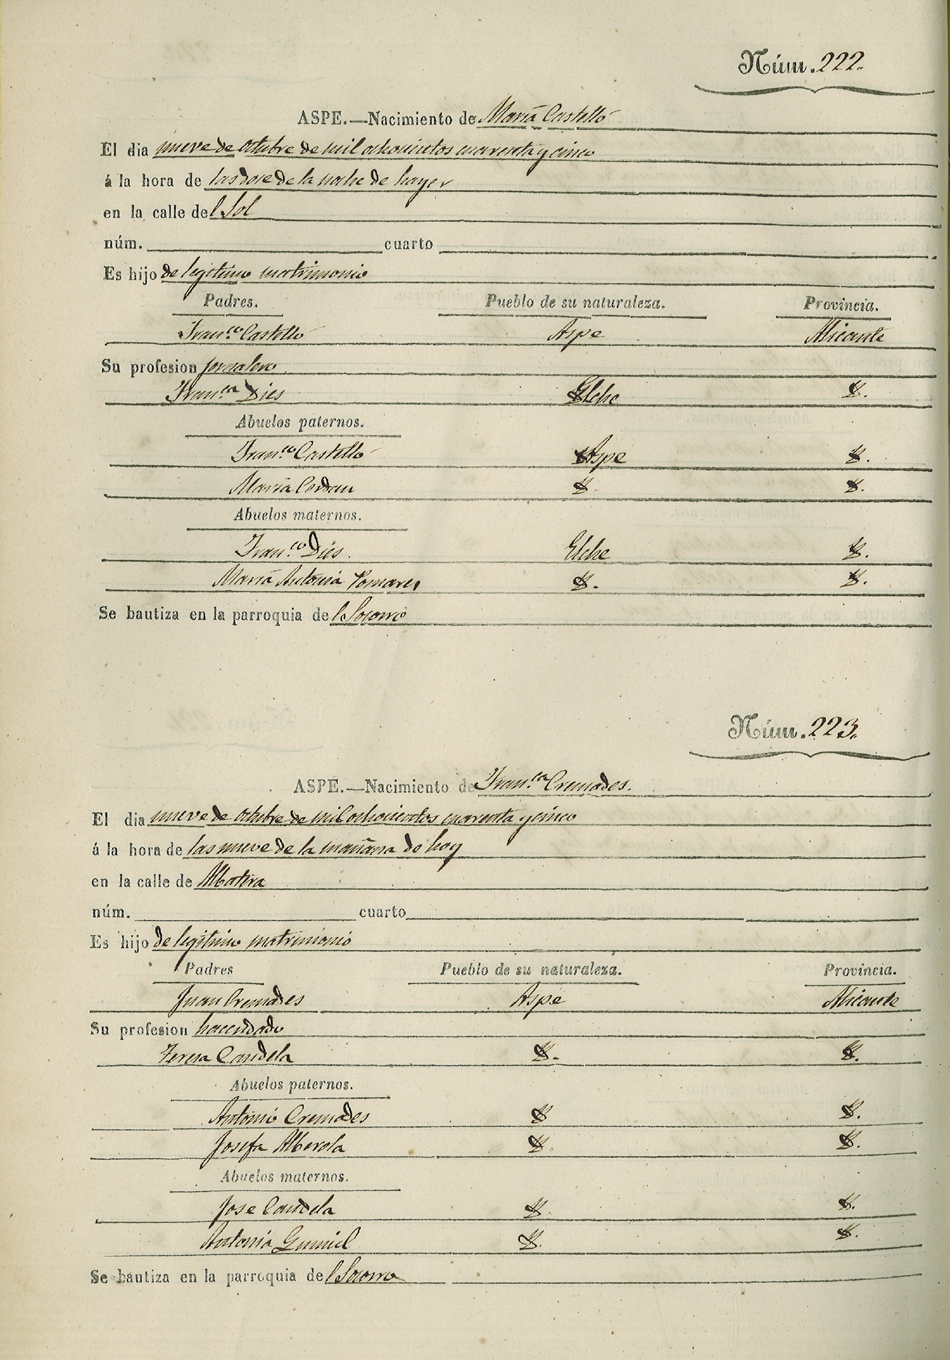 Núm. 222.
ASPE.—Nacimiento de María Castelló
El dia nueve de otubre de mil ochocientos cuarenta y cinco
á la hora de las dose de la noche de hayer
en la calle del Sol
núm. cuarto
Es hijo de legitimo matrimonio
Padres. Pueblo de su naturaleza. Provincia.
Franco Castelló Aspe Alicante
Su profesion jornalero
Franca Dies Elche
Abuelos paternos.
Franco Castelló Aspe
María
Abuelos maternos.
Franco Dies. Elche
María Antonia Pomares
Se bautiza en la parroquia del Socorro
Núm. 223.
ASPE.—Nacimiento de Franca Cremades.
El dia nueve de otubre de mil ochocientos cuarenta y cinco
á la hora de las nueve de la mañana de hoy
en la calle de Albatera
núm. cuarto
Es hijo de legitimo matrimonio
Padres Pueblo de su naturaleza. Provincia.
Juan Cremades Aspe Alicante
Su profesion hacendado
Teresa Candela
Abuelos paternos.
Antonio Cremades
Josefa Alberola
Abuelos maternos.
Jose Candela
Antonia
Se bautiza en la parroquia del Socorro